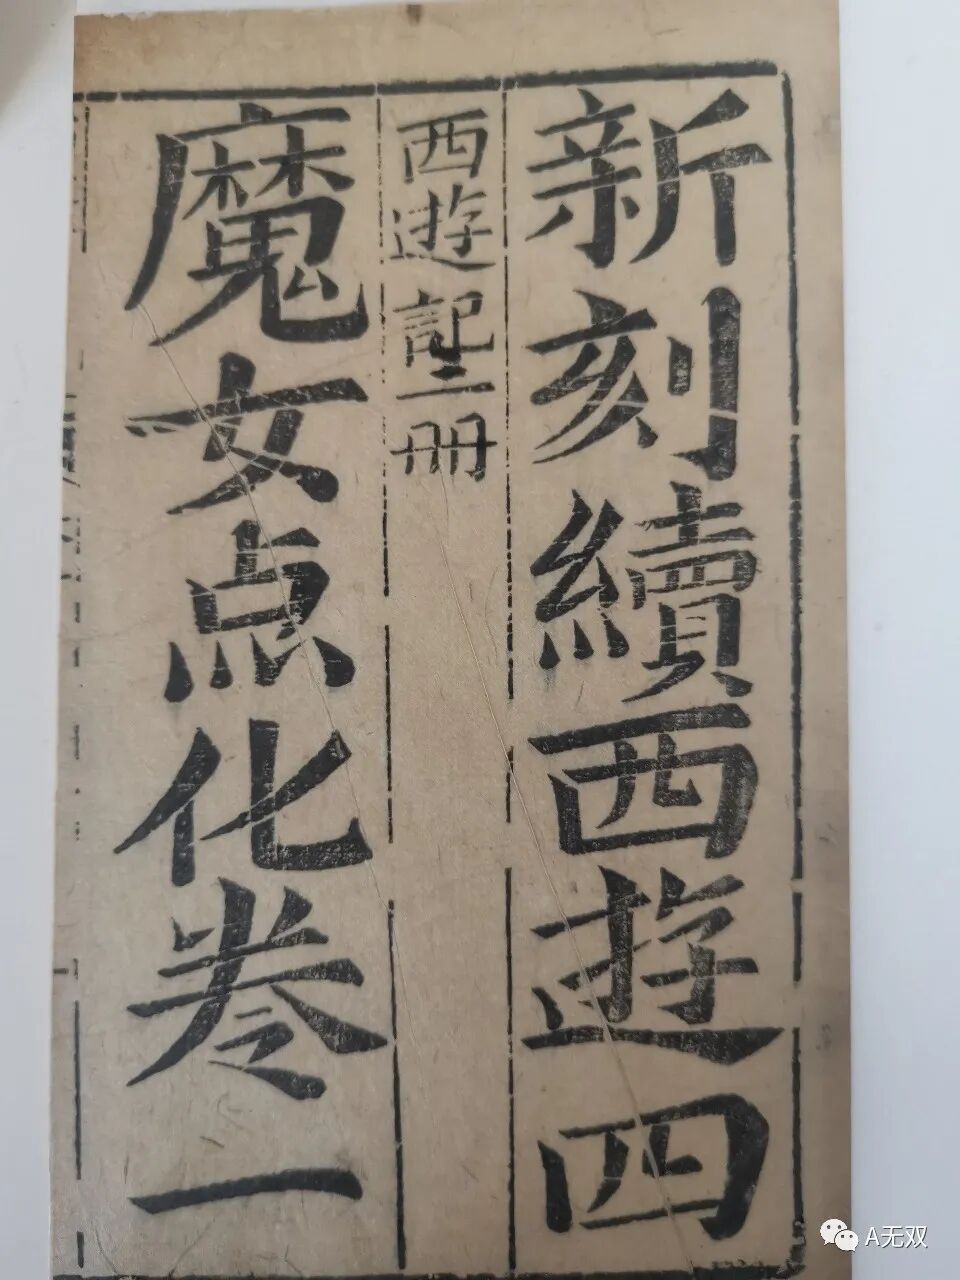 新刻續西遊四
西遊記二册
魔女点化卷一
A无双